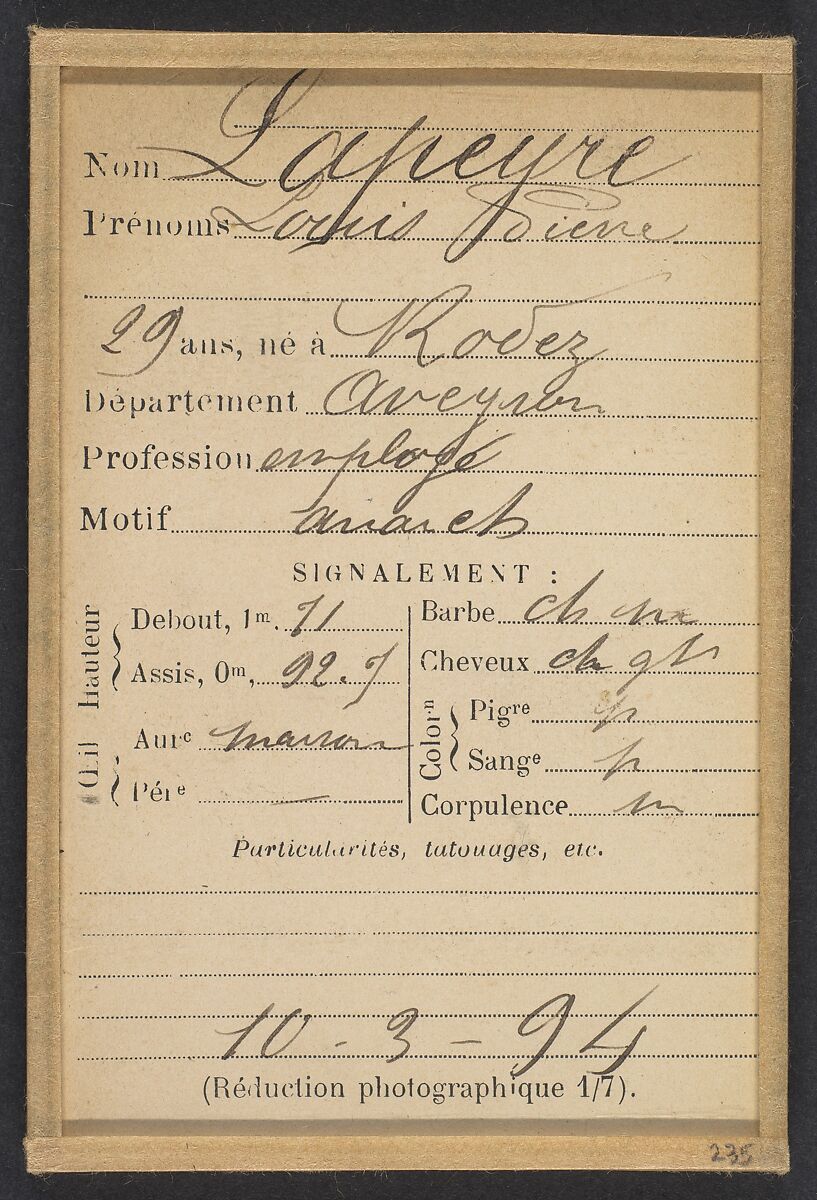 Nom Lapeyre
Prénoms Louis Pierre
29 ans, né à Rodez
Département Aveyron
Profession employé
Motif anarch
SIGNALEMENT :
Hauteur
Debout, 1m. 71
Assis, 0m, 92.7
Œil
Aure marron
Pére —
Barbe ch m
Cheveux ch
Colorn
Pigre p
Sange p
Corpulence m
Particularités, tatouages, etc.
10 - 3 - 94
(Réduction photographique 1/7).
235